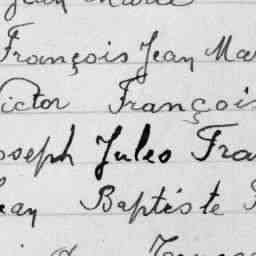 Jean Marie
François Jean Ma
ictor François
oseph Jules Fra
Jean Baptiste